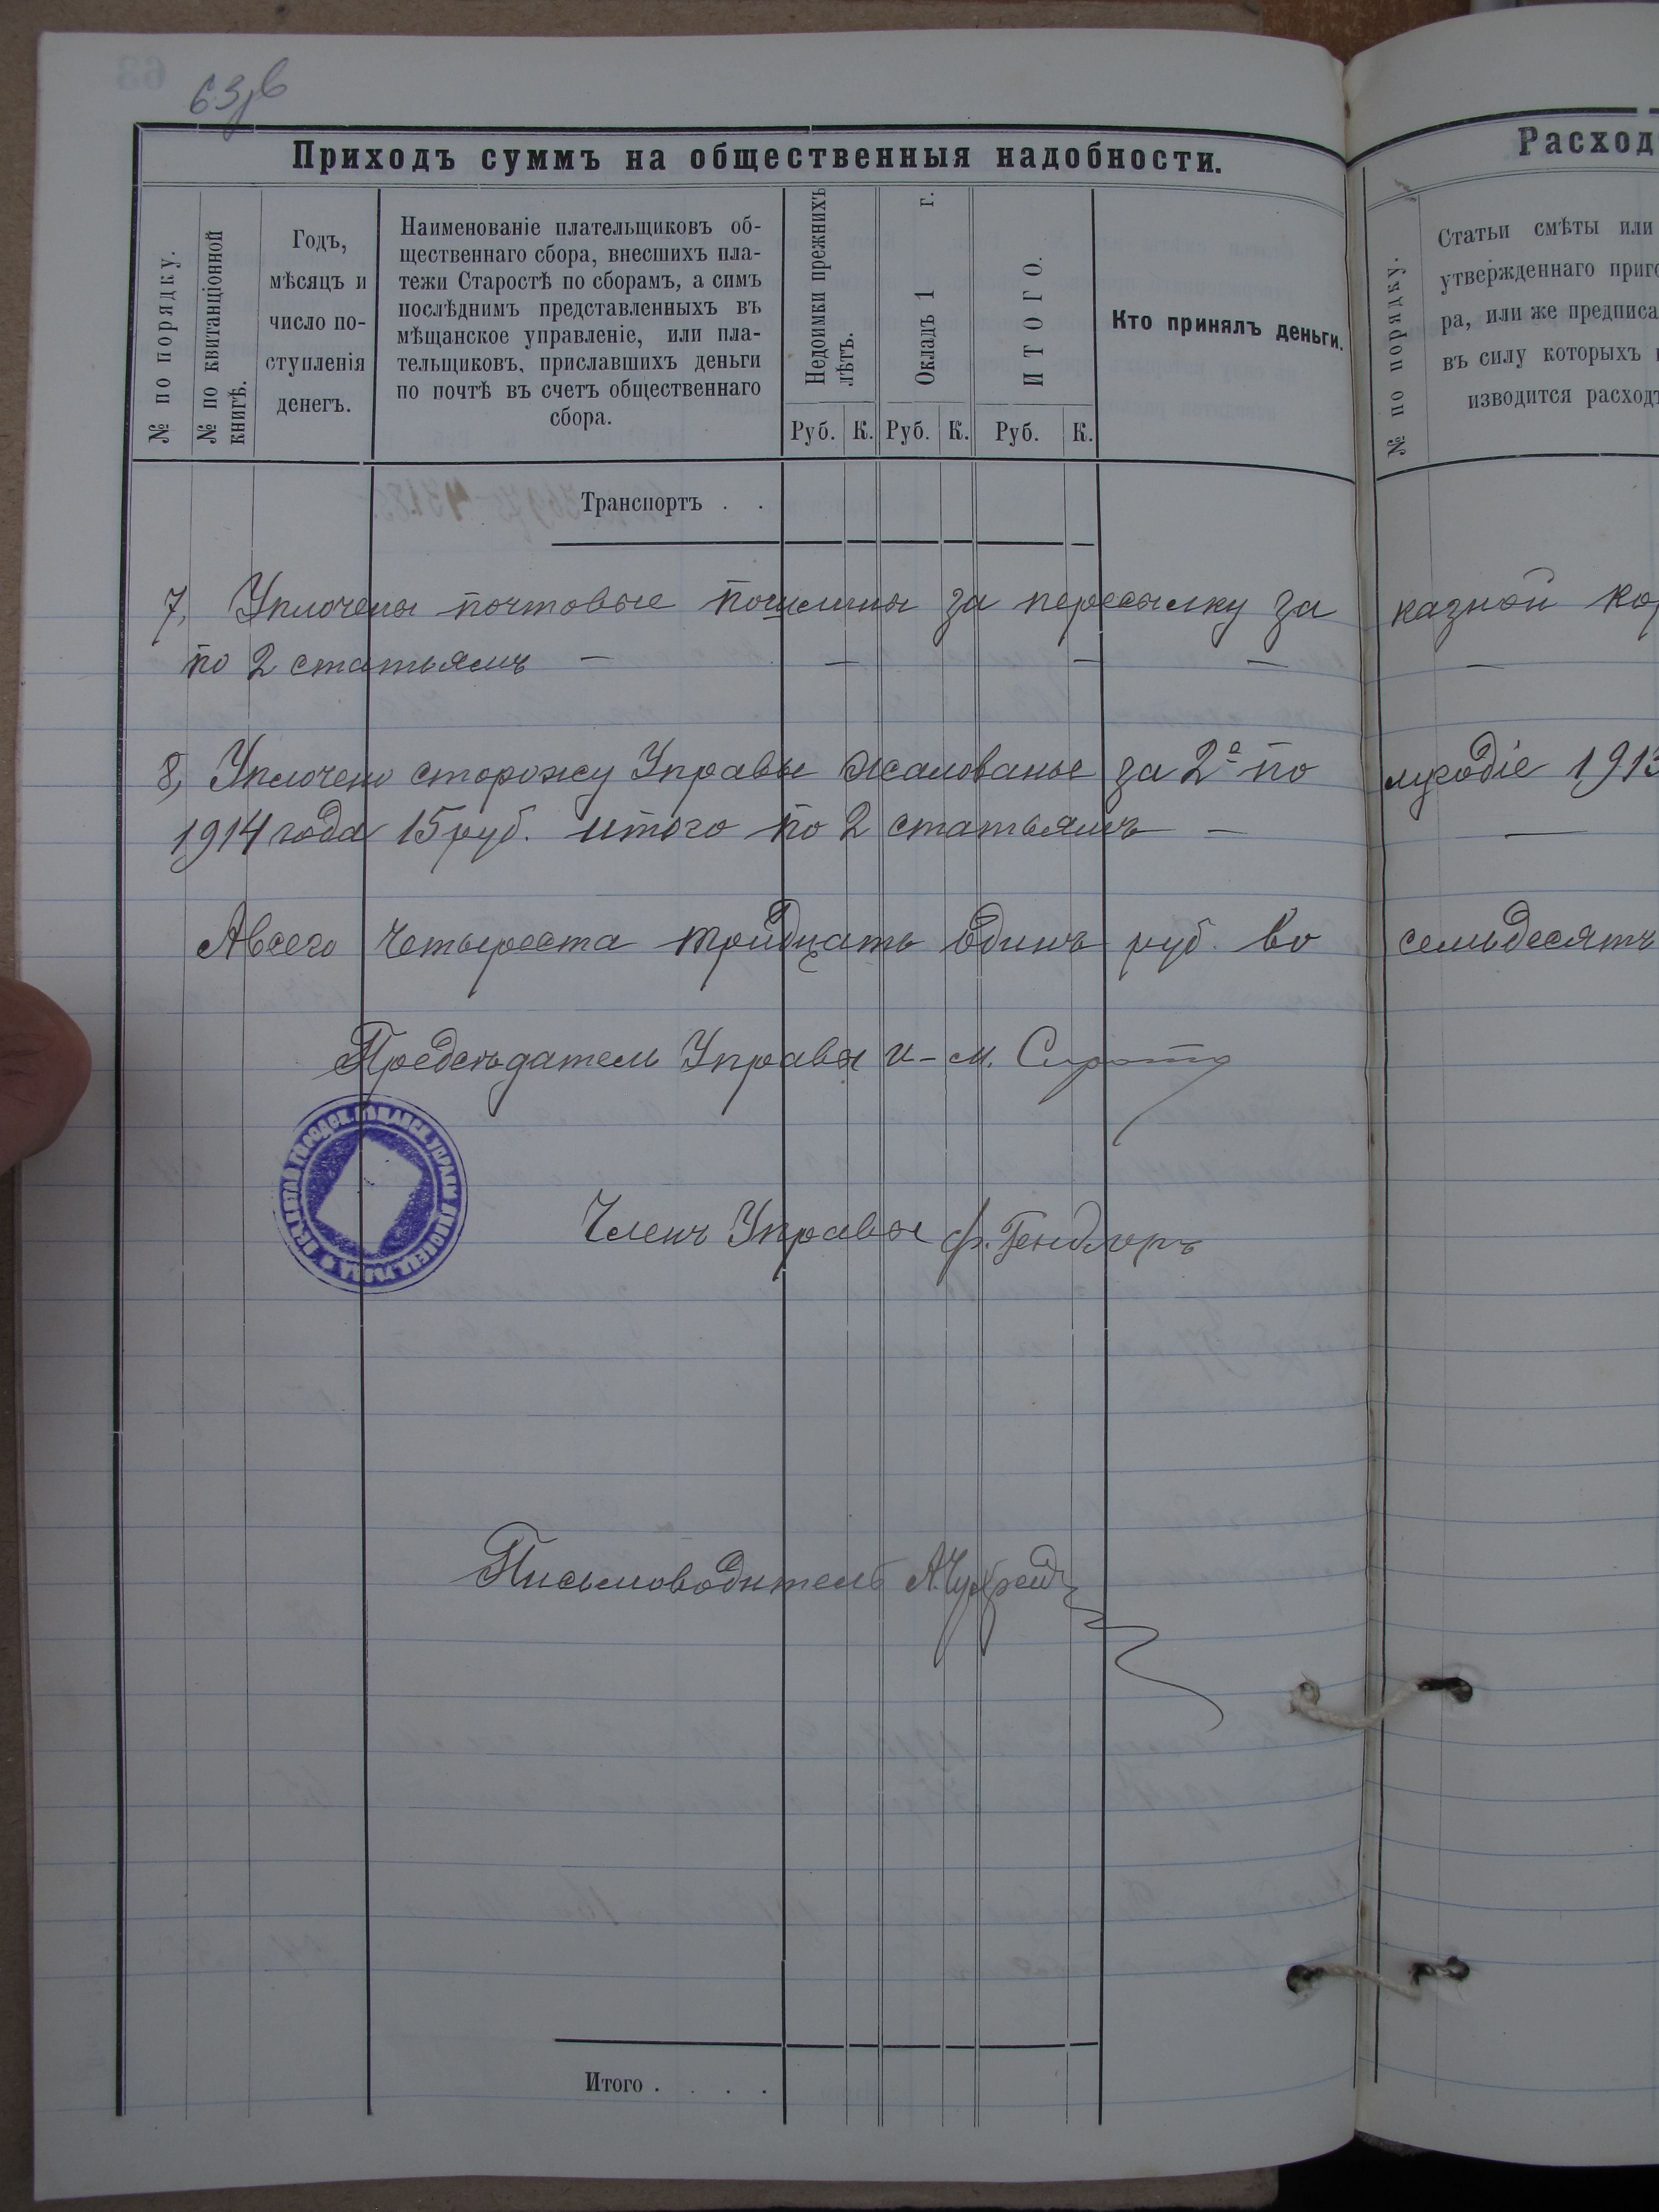 63об
Приходъ суммъ на общественныя надобности.
№ по порядку.
№ по квитанціонной
книгѣ.
Годъ,
мѣсяцъ и
число по-
ступленія
денегъ.
Наименованіе плательщиковъ об-
щественнаго сбора, внесшихъ пла-
тежи Старостѣ по сборамъ, а симъ
послѣднимъ представленныхъ въ
мѣщанское управленіе, или пла-
тельщиковъ, приславшихъ деньги
по почтѣ въ счетъ общественнаго
сбора.
Недоимки прежнихъ
лѣтъ.
Окладъ 1 г.
ИТОГО.
Руб. К. Руб. К. Руб. К.
Кто принялъ деньги.
Расход
№ по порядку.
Статьи смѣты или
утвержденнаго приго
ра, или же предписа
въ силу которыхъ
изводится расходъ
Транспортъ . .
7, Уплочены почтовые пошлины за пересылку за казной ко
по 2 статьямъ — — — — —
8, Уплочено сторожу Управы жалованье за 2е по лугодіе 1913
1914 года 15 руб. итого по 2 статьямъ — —
А всего четыреста тридцать одинъ руб. во семьдесятъ
Предсѣдатель Управы И-М. Сирота
Членъ Управы Ф. Гендлеръ
Письмоводитель
Итого . . . .